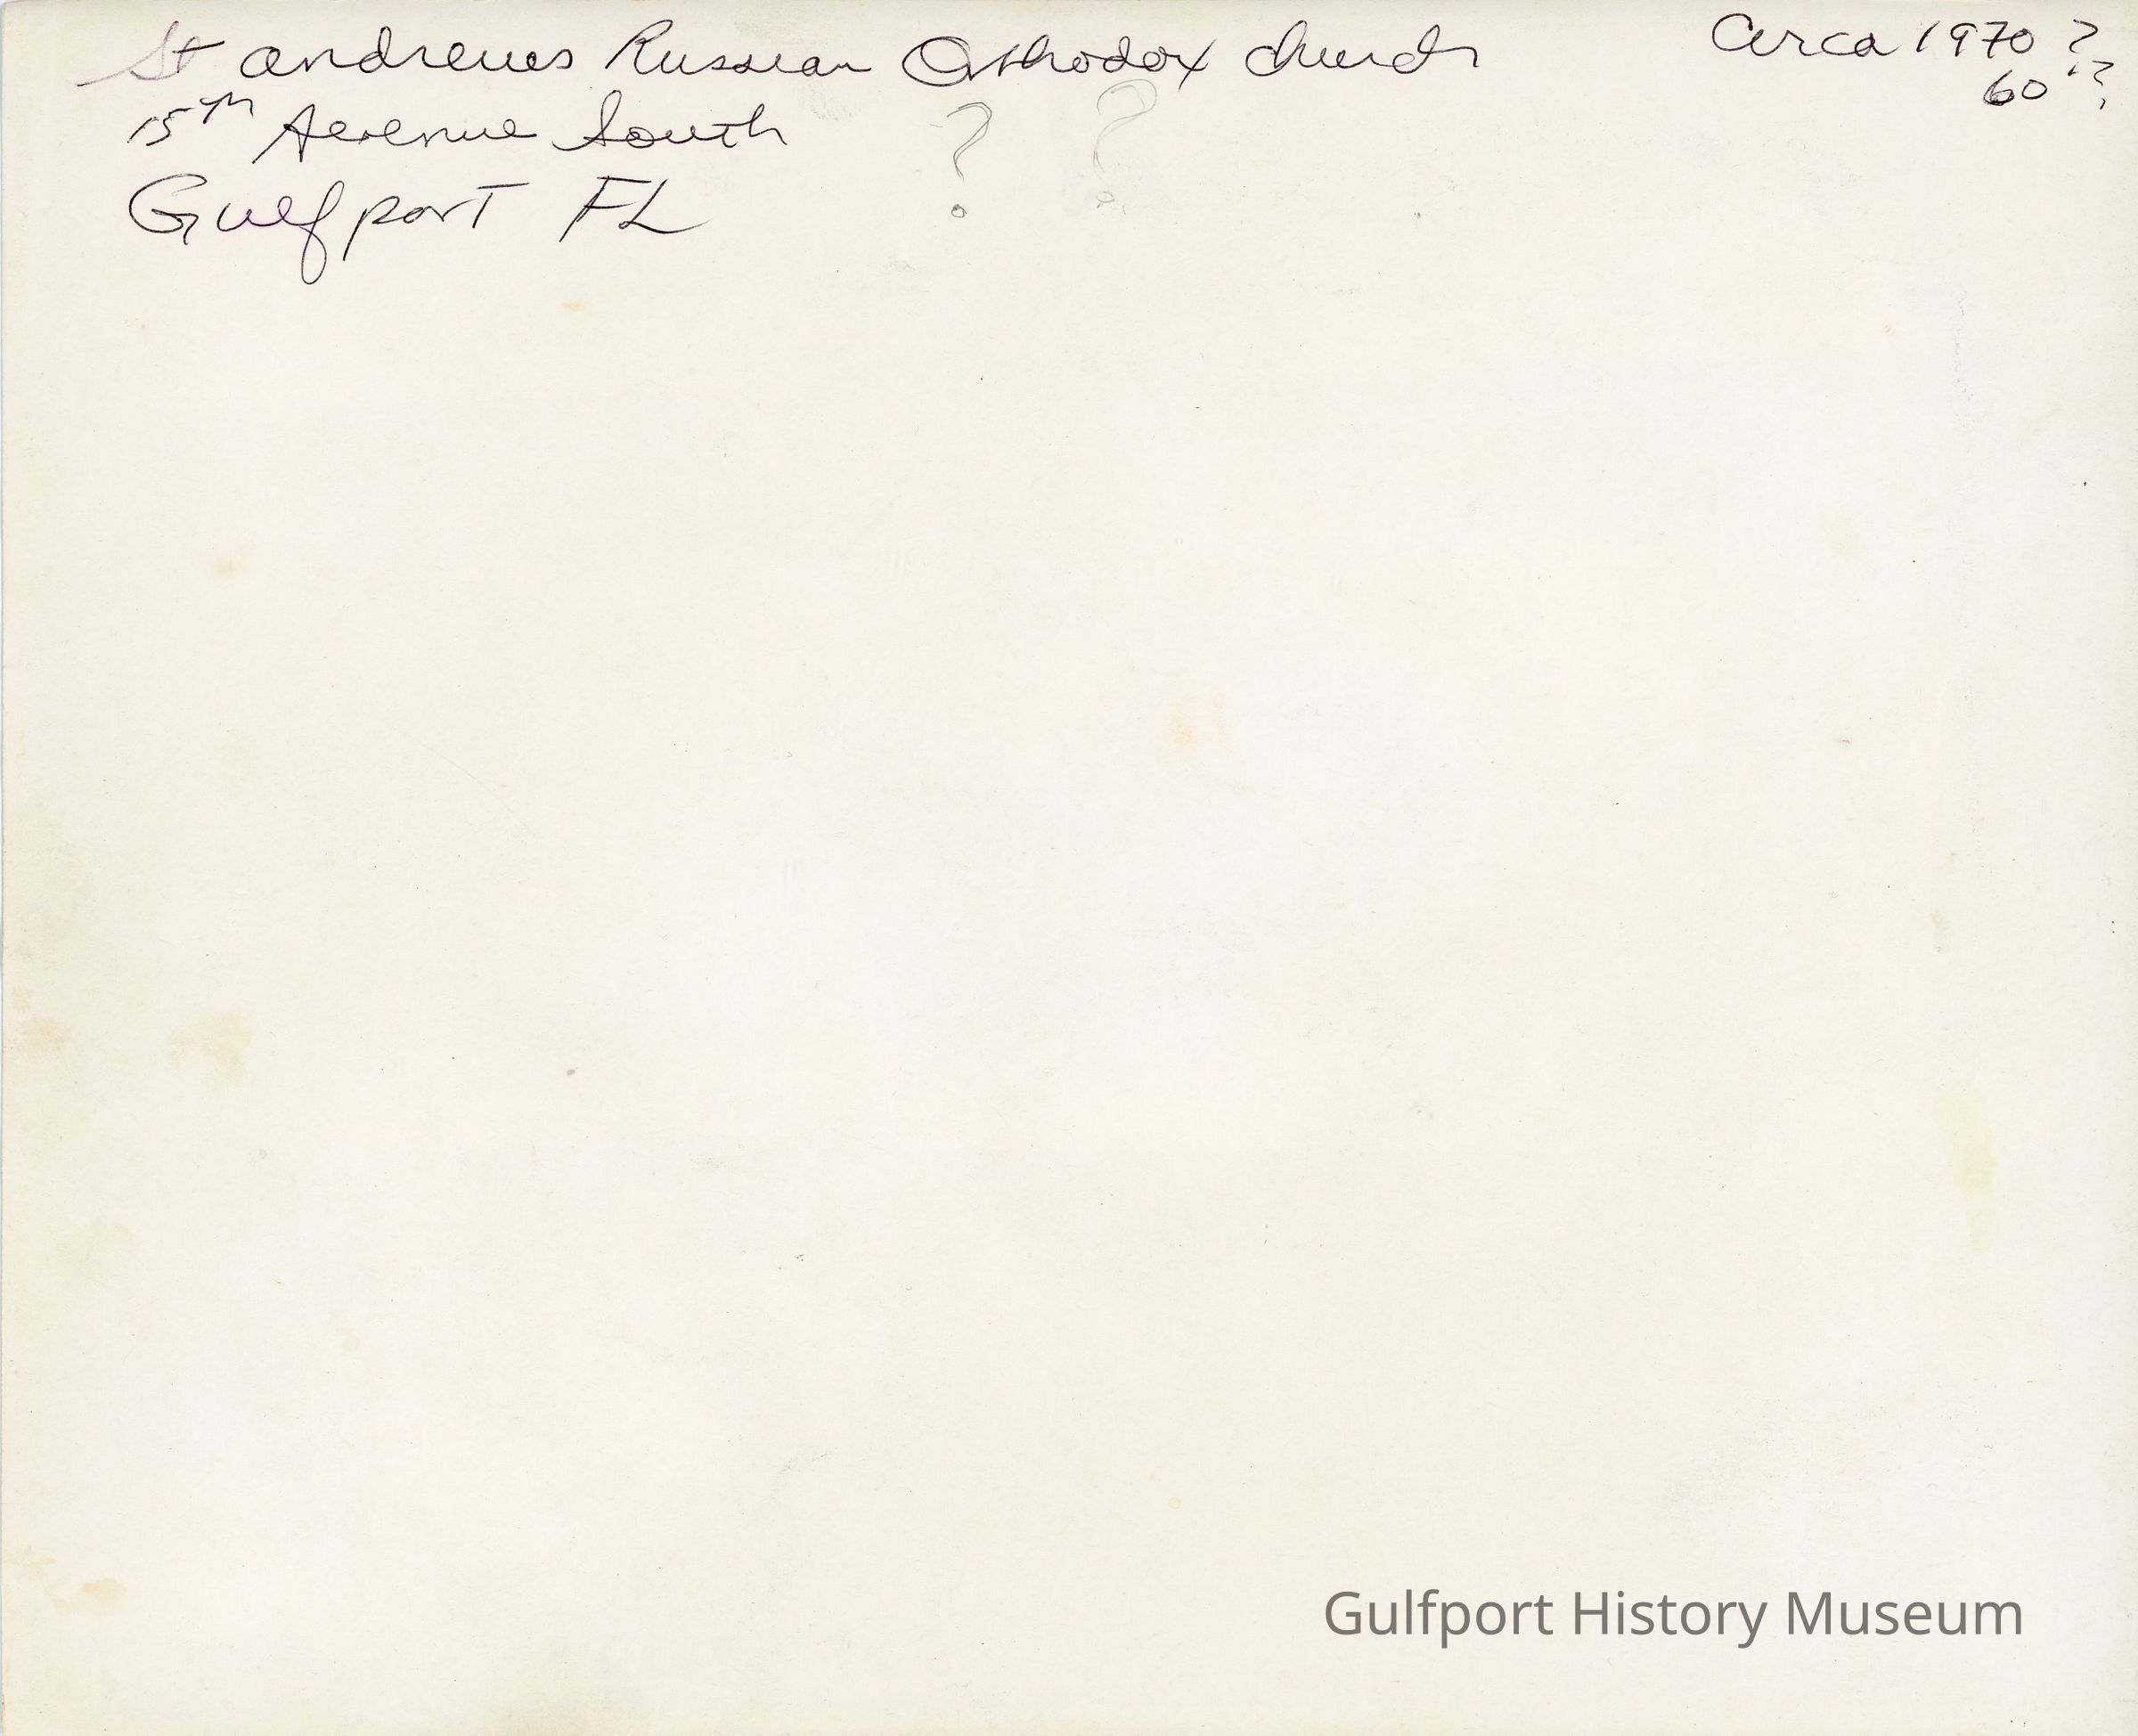 St andrews Russian Orthodox church
Circa 1970 ?
60 ??
15th Avenue South ? ?
Gulfport FL
Gulfport History Museum